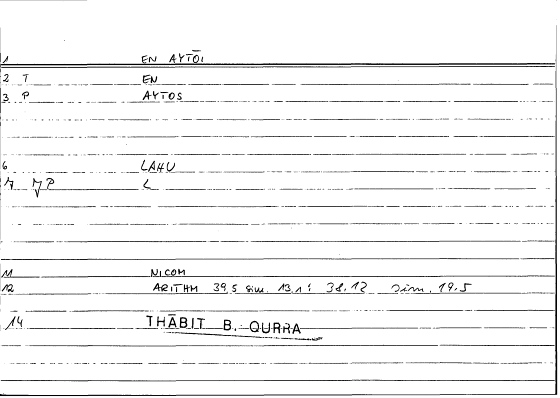 1 EN AYTŌI
2 T EN
3 P AYTOS
6 LAHU
7 P L
11 NICOM
12 ARITHM 39,5 sim. 13,1; 38,12 sim. 19,5
14 THĀBIT B. QURRA